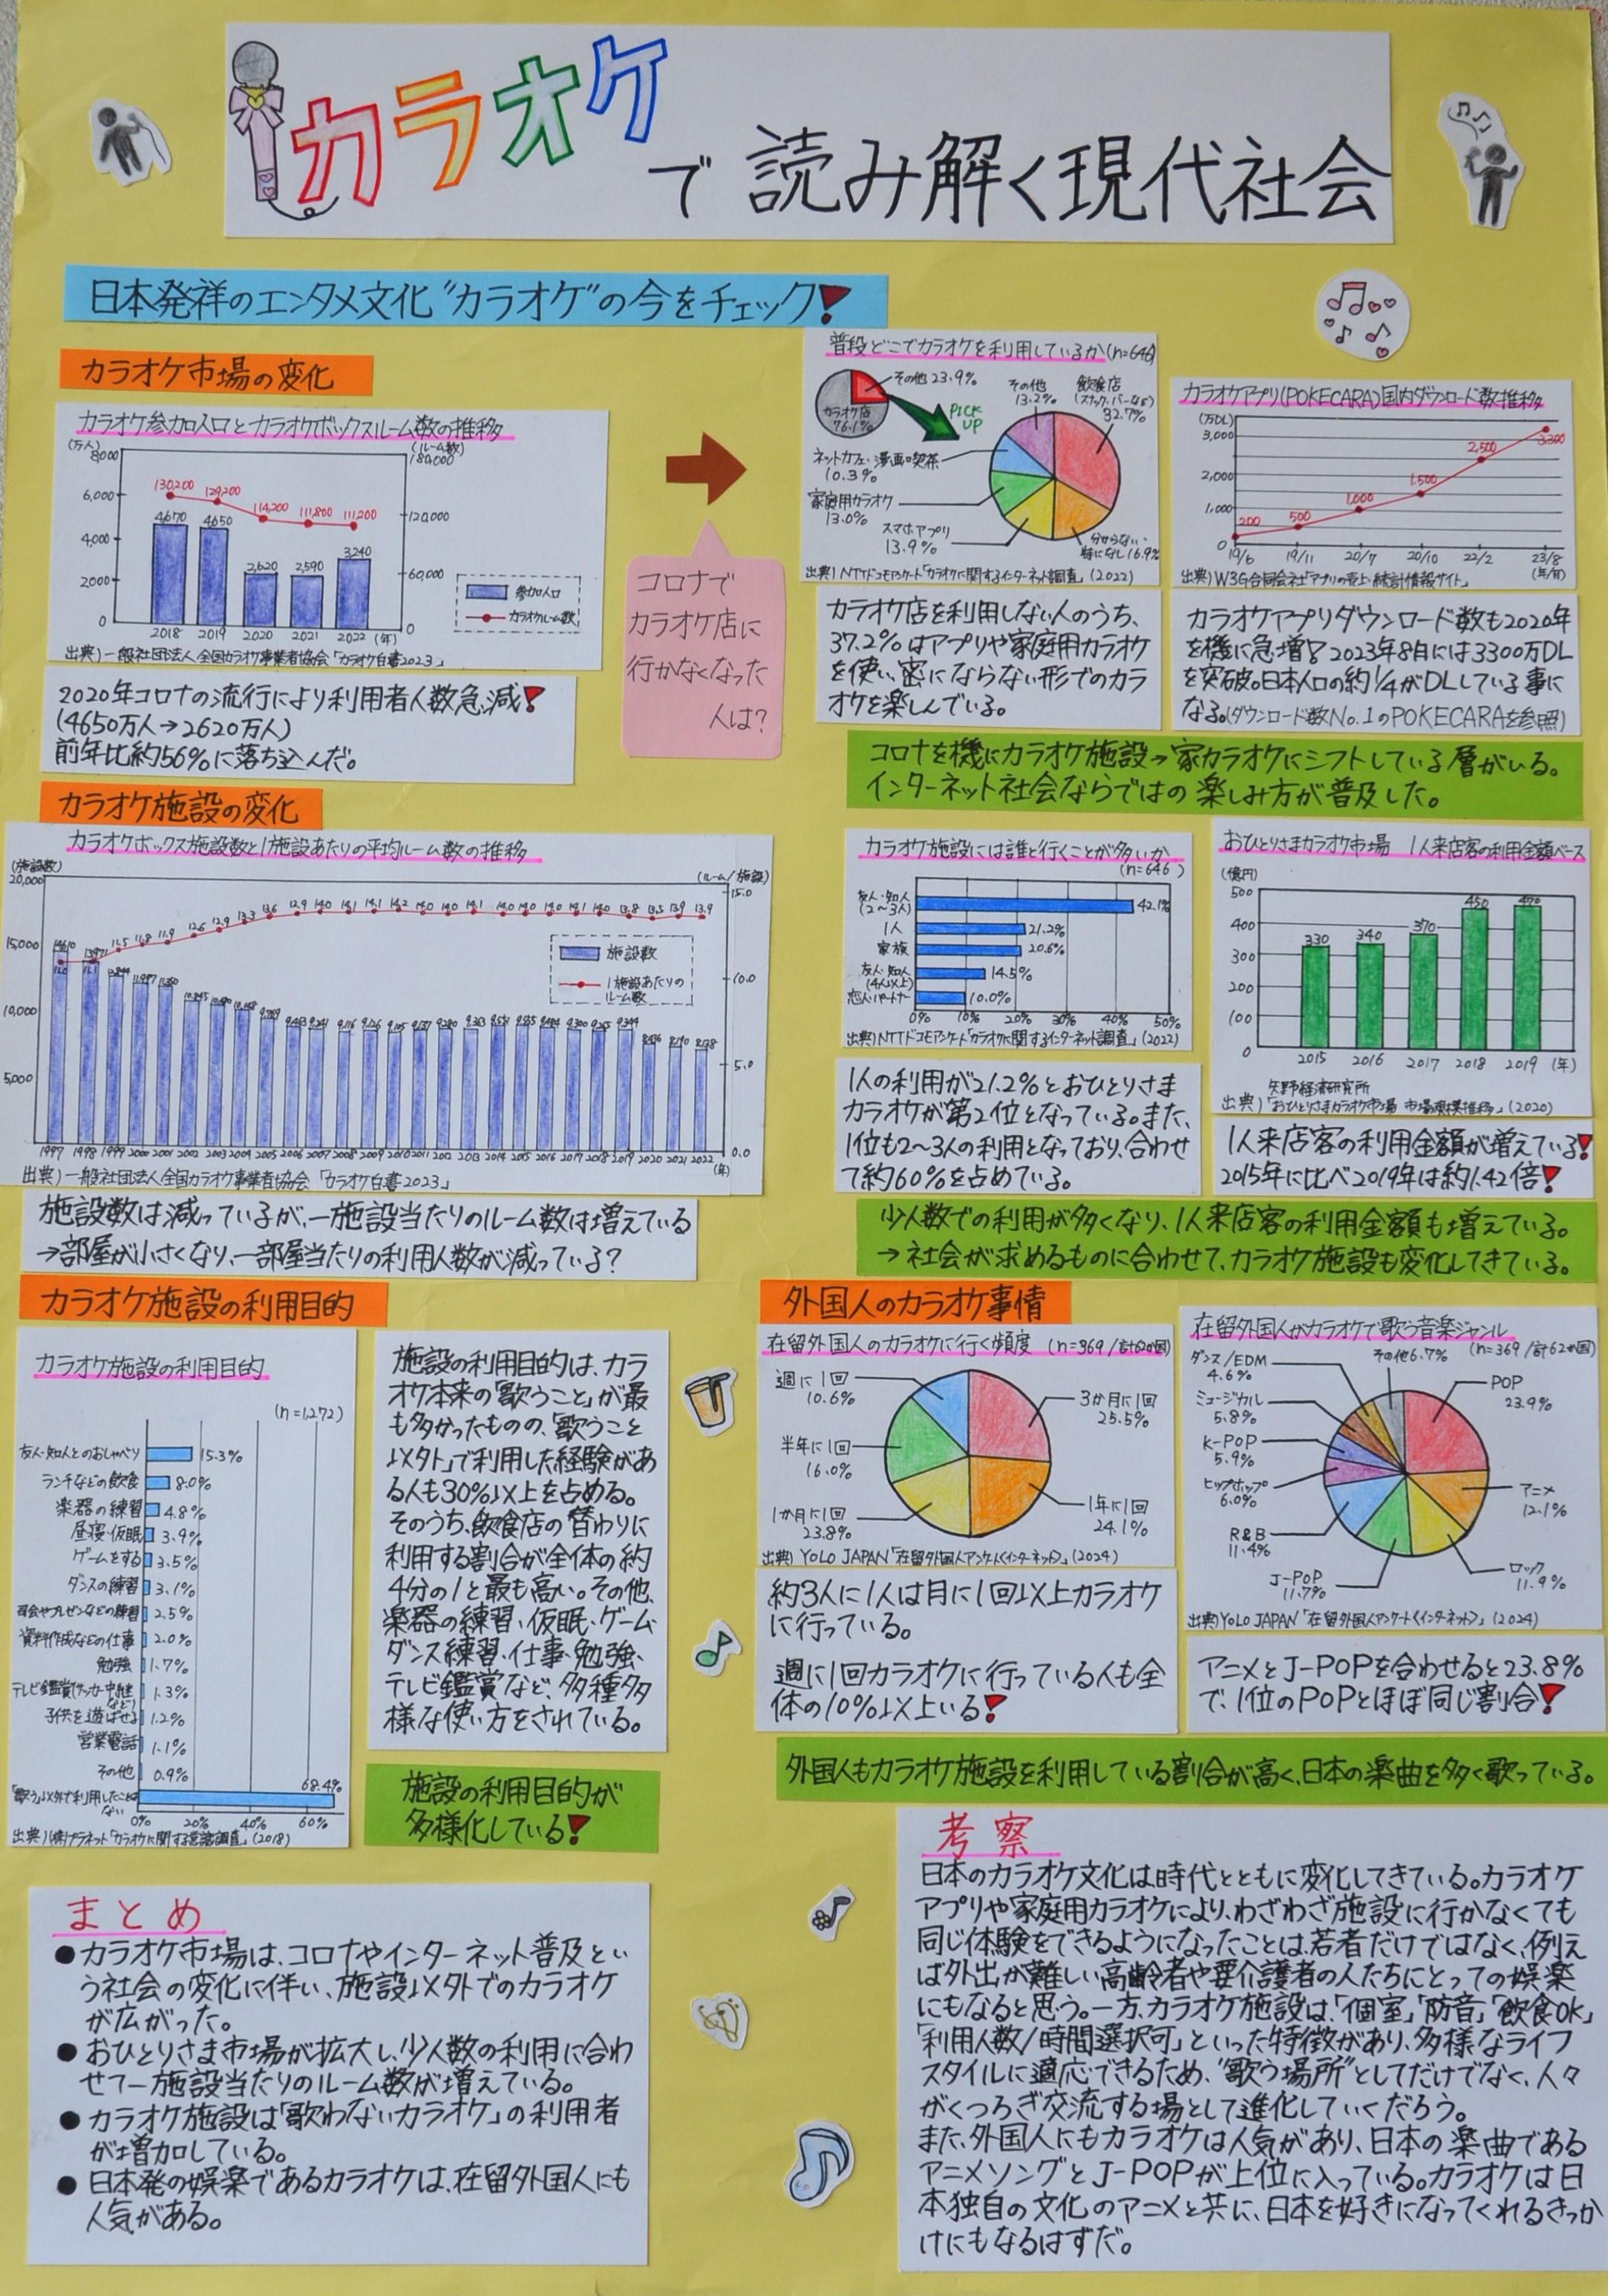 カラオケで読み解く現代社会
日本発祥のエンタメ文化"カラオケ"の今をチェック!
カラオケ市場の変化
カラオケ参加人口とカラオケボックスルーム数の推移
(万人)
(ルーム数)
8,000
6,000
4,000
2,000
0
180,000
120,000
60,000
0
130,200 129,200 114,200 111,800 111,200
4,670 4,650 2,620 2,590 3,240
2018 2019 2020 2021 2022 (年)
参加人口
カラオケルーム数
出典)一般社団法人全国カラオケ事業者協会「カラオケ白書2023」
2020年コロナの流行により利用者人数急減!
(4650万人→2620万人)
前年比約56%に落ち込んだ。
コロナで
カラオケ店に
行かなくなった
人は?
普段どこでカラオケを利用しているか(n=646)
その他 23.9%
カラオケ店
76.1%
PICK
UP
その他
13.2%
飲食店
(スナック、バーなど)
32.7%
ネットカフェ・漫画喫茶
10.3%
家庭用カラオケ
13.0%
スマホアプリ
13.9%
分からない・
特になし16.9%
出典)NTTドコモアンケート「カラオケに関するインターネット調査」(2022)
カラオケ店を利用しない人のうち、
37.2%はアプリや家庭用カラオケ
を使い、密にならない形でのカラ
オケを楽しんでいる。
カラオケアプリ(POKECARA)国内ダウンロード数推移
(万DL)
3,000
2,000
1,000
0
200 500 1,000 1,500 2,500 3,300
19/6 19/11 20/7 20/10 22/2 23/8
(年/月)
出典)W3G合同会社「アプリの売上・統計情報サイト」
カラオケアプリダウンロード数も2020年
を機に急増!2023年8月には3300万DL
を突破。日本人口の約1/4がDLしている事に
なる。(ダウンロード数No.1のPOKECARAを参照)
コロナを機にカラオケ施設→家カラオケにシフトしている層がいる。
インターネット社会ならではの楽しみ方が普及した。
カラオケ施設の変化
カラオケボックス施設数と1施設あたりの平均ルーム数の推移
(施設数)
(ルーム/施設)
20,000
15,000
10,000
5,000
15.0
10.0
5.0
0.0
11.0 11.1 11.5 11.8 11.9 12.6 12.9 13.3 13.6 12.9 14.0 14.1 14.1 14.2 14.0 14.0 14.1 14.0 14.0 14.0 14.1 14.0 13.8 13.5 13.9 13.9
施設数
1施設あたりの
ルーム数
1997 1998 1999 2000 2001 2002 2003 2004 2005 2006 2007 2008 2009 2010 2011 2012 2013 2014 2015 2016 2017 2018 2019 2020 2021 2022 (年)
出典)一般社団法人全国カラオケ事業者協会「カラオケ白書2023」
施設数は減っているが、一施設当たりのルーム数は増えている
→部屋が小さくなり、一部屋当たりの利用人数が減っている?
カラオケ施設には誰と行くことが多いか
(n=646)
友人・知人
(2〜3人)
42.1%
1人
21.2%
家族
20.6%
友人・知人
(4人以上)
14.5%
恋人・パートナー
10.0%
0% 10% 20% 30% 40% 50%
出典)NTTドコモアンケート「カラオケに関するインターネット調査」(2022)
1人の利用が21.2%とおひとりさま
カラオケが第2位となっている。また、
1位も2〜3人の利用となっており、合わせ
て約60%を占めている。
おひとりさまカラオケ市場 1人来店客の利用金額ベース
(億円)
500
400
300
200
100
0
330 340 370 450 470
2015 2016 2017 2018 2019 (年)
矢野経済研究所
出典)「おひとりさまカラオケ市場 市場規模推移」(2020)
1人来店客の利用金額が増えている!
2015年に比べ2019年は約1.42倍!
少人数での利用が多くなり、1人来店客の利用金額も増えている。
→社会が求めるものに合わせて、カラオケ施設も変化してきている。
カラオケ施設の利用目的
カラオケ施設の利用目的
(n=1,272)
友人・知人とのおしゃべり 15.3%
ランチなどの飲食 8.0%
楽器の練習 4.8%
昼寝・仮眠 3.9%
ゲームをする 3.5%
ダンスの練習 3.1%
司会やプレゼンなどの練習 2.5%
資料作成などの仕事 2.0%
勉強 1.7%
テレビ鑑賞(サッカー中継など) 1.3%
子供を遊ばせる 1.2%
営業電話 1.1%
その他 0.9%
「歌う」以外で利用したことはない 68.4%
0% 20% 40% 60%
出典)(株)プラネット「カラオケに関する意識調査」(2018)
施設の利用目的は、カラ
オケ本来の「歌うこと」が最
も多かったものの、「歌うこと
以外」で利用した経験があ
る人も30%以上を占める。
そのうち、飲食店の替わりに
利用する割合が全体の約
4分の1と最も高い。その他、
楽器の練習・仮眠・ゲーム・
ダンス練習・仕事・勉強・
テレビ鑑賞など、多種多
様な使い方をされている。
施設の利用目的が
多様化している!
外国人のカラオケ事情
在留外国人のカラオケに行く頻度 (n=369/計62か国)
週に1回
10.6%
3か月に1回
25.5%
半年に1回
16.0%
1か月に1回
23.8%
1年に1回
24.1%
出典)YOLO JAPAN「在留外国人アンケート<インターネット>」(2024)
約3人に1人は月に1回以上カラオケ
に行っている。
週に1回カラオケに行っている人も全
体の10%以上いる!
在留外国人がカラオケで歌う音楽ジャンル
(n=369/計62か国)
ダンス/EDM
4.6%
その他6.7%
ミュージカル
5.8%
POP
23.9%
K-POP
5.9%
ヒップホップ
6.0%
アニメ
12.1%
R&B
11.4%
J-POP
11.7%
ロック
11.9%
出典)YOLO JAPAN「在留外国人アンケート<インターネット>」(2024)
アニメとJ-POPを合わせると23.8%
で、1位のPOPとほぼ同じ割合!
外国人もカラオケ施設を利用している割合が高く、日本の楽曲を多く歌っている。
まとめ
●カラオケ市場は、コロナやインターネット普及とい
う社会の変化に伴い、施設以外でのカラオケ
が広がった。
●おひとりさま市場が拡大し、少人数の利用に合わ
せて一施設当たりのルーム数が増えている。
●カラオケ施設は「歌わないカラオケ」の利用者
が増加している。
●日本発の娯楽であるカラオケは、在留外国人にも
人気がある。
考察
日本のカラオケ文化は時代とともに変化してきている。カラオケ
アプリや家庭用カラオケにより、わざわざ施設に行かなくても
同じ体験をできるようになったことは、若者だけではなく、例え
ば外出が難しい高齢者や要介護者の人たちにとっての娯楽
にもなると思う。一方、カラオケ施設は、「個室」「防音」「飲食OK」
「利用人数/時間選択可」といった特徴があり、多様なライフ
スタイルに適応できるため、"歌う場所"としてだけでなく、人々
がくつろぎ交流する場として進化していくだろう。
また、外国人にもカラオケは人気があり、日本の楽曲である
アニメソングとJ-POPが上位に入っている。カラオケは日
本独自の文化のアニメと共に、日本を好きになってくれるきっか
けにもなるはずだ。